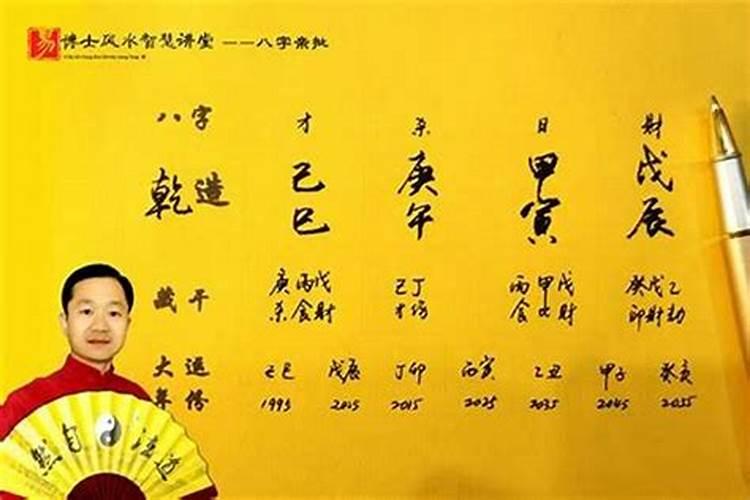 易 博士风水智慧讲堂 ——八字亲批
八字 才 杀 日 财
乾造 己 庚 甲 戊
巳 午 寅 辰
藏干 庚丙戊 己丁 丙甲戊 癸戊乙
杀食财 才伤 食比财 印财劫
大運 己巳 戊辰 丁卯 丙寅 乙丑 甲子 癸亥
年份 1995 2005 2015 2025 2035 2045 2055
然自法道